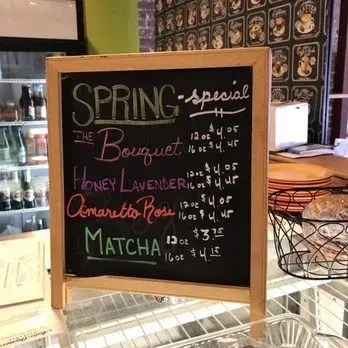 SPRING - special
THE Bouquet 12 oz $4.05
16 oz $4.45
HONEY LAVENDER 12 oz $4.05
16 oz $4.45
Amaretto Rose 12 oz $4.05
16 oz $4.45
MATCHA 12 oz $3.75
16 oz $4.15